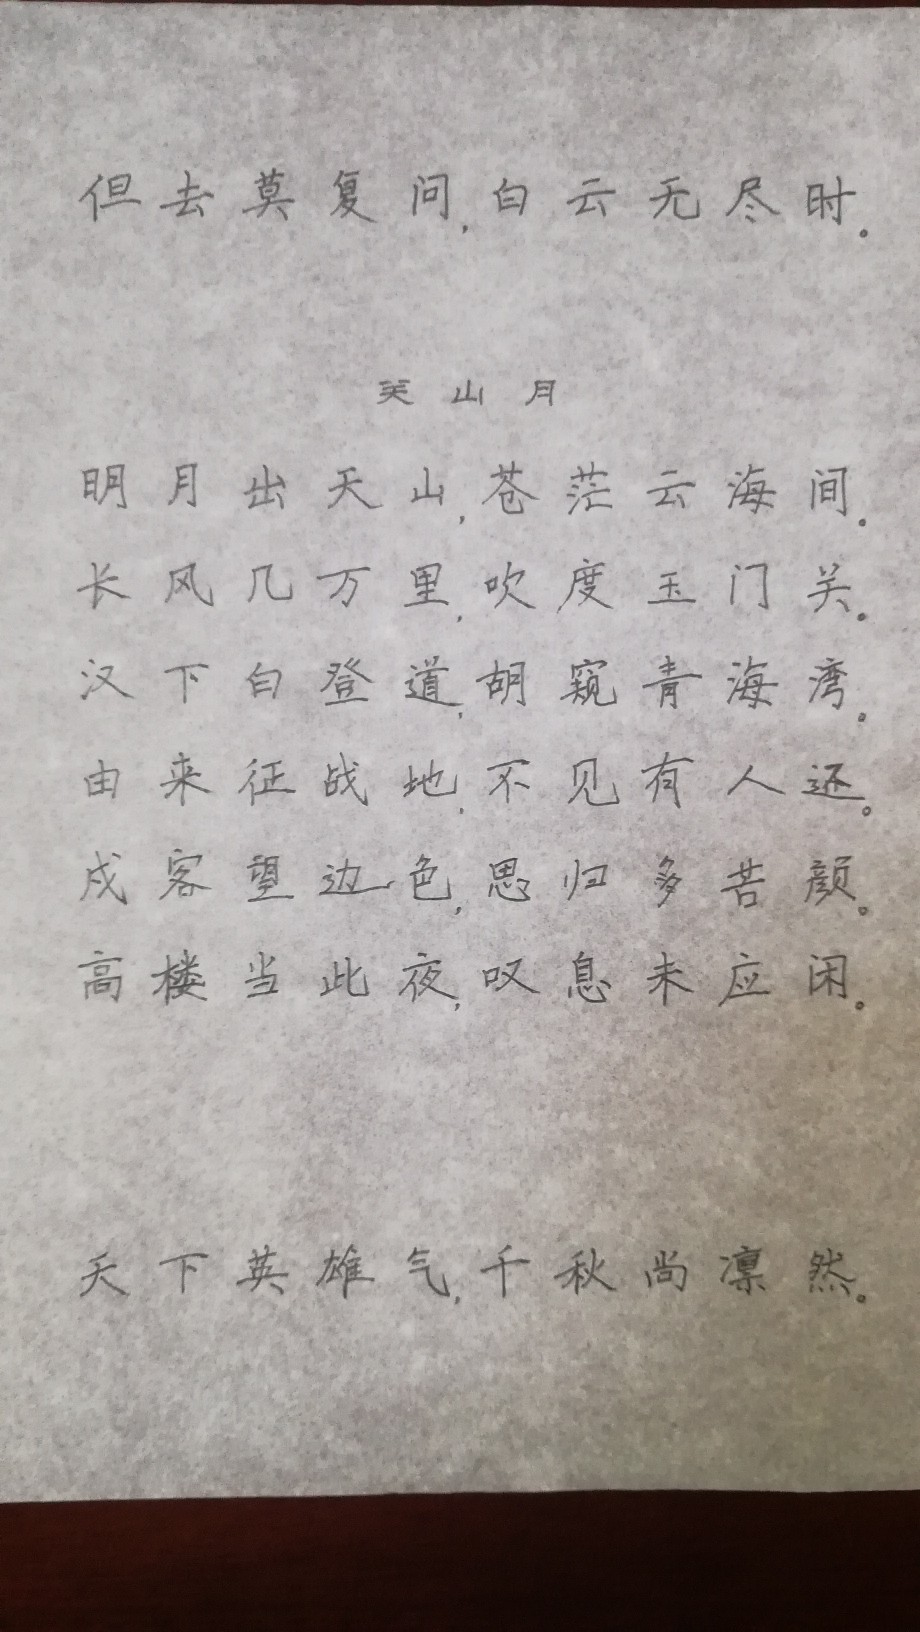 但去莫复问,白云无尽时。
关山月
明月出天山,苍茫云海间。
长风几万里,吹度玉门关。
汉下白登道,胡窥青海湾。
由来征战地,不见有人还。
戍客望边色,思归多苦颜。
高楼当此夜,叹息未应闲。
天下英雄气,千秋尚凛然。